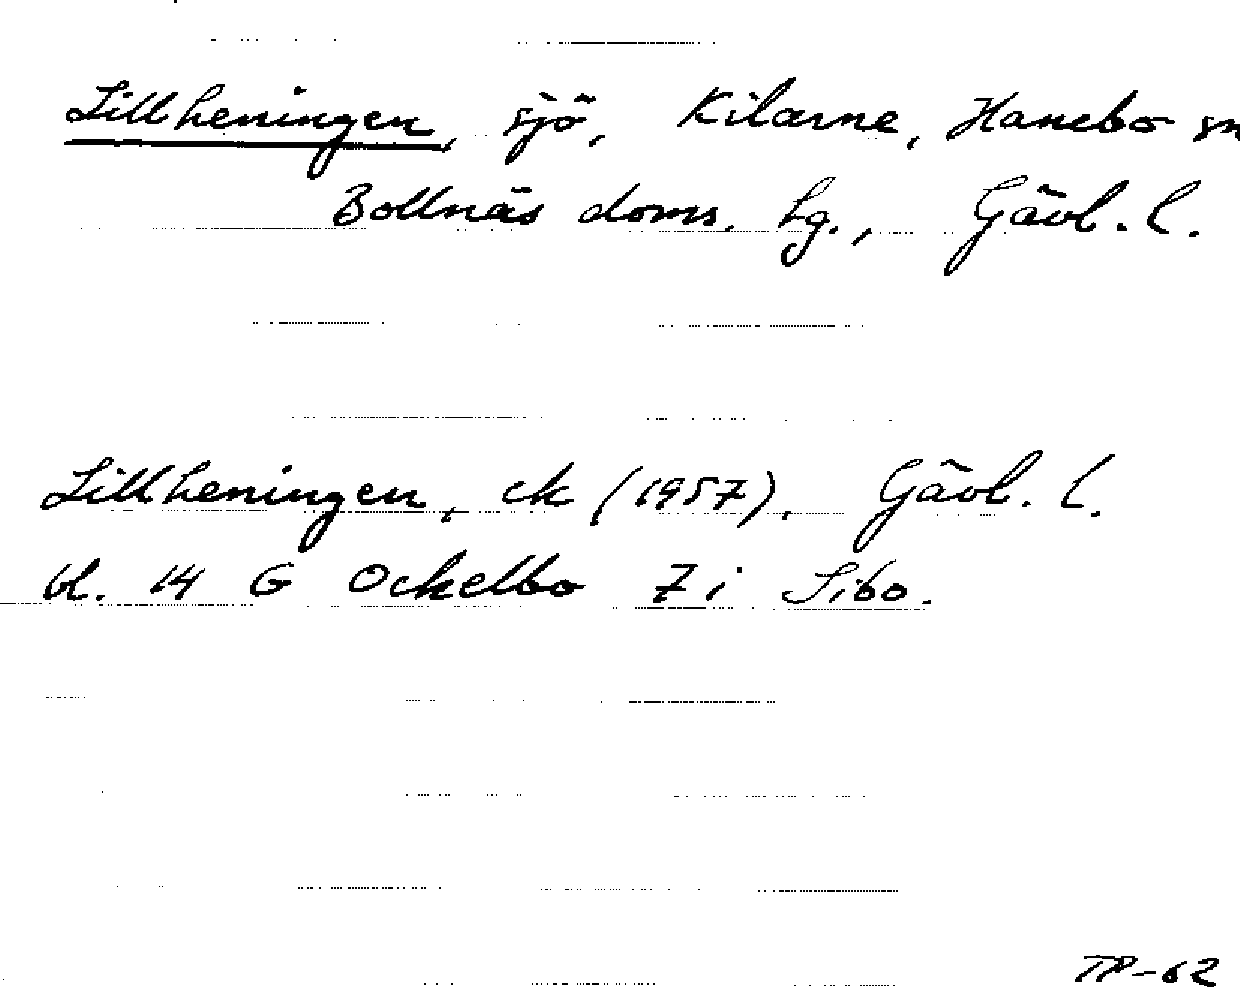 Lillheningen, sjö, Kilarne, Hanebo sn
Bollnäs doms. hg., Gävl. l.
Lillheningen, ek (1957), Gävl. l.
bl. 14 G Ockelbo 7 i Sibo.
TP-62